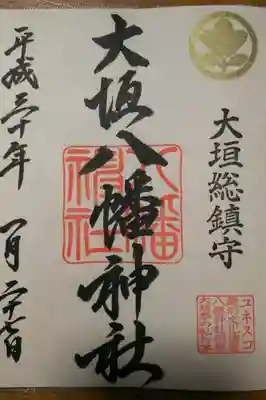 大垣総鎮守
大垣八幡神社
八幡神社
平成三十年 一月二十七日
ユネスコ